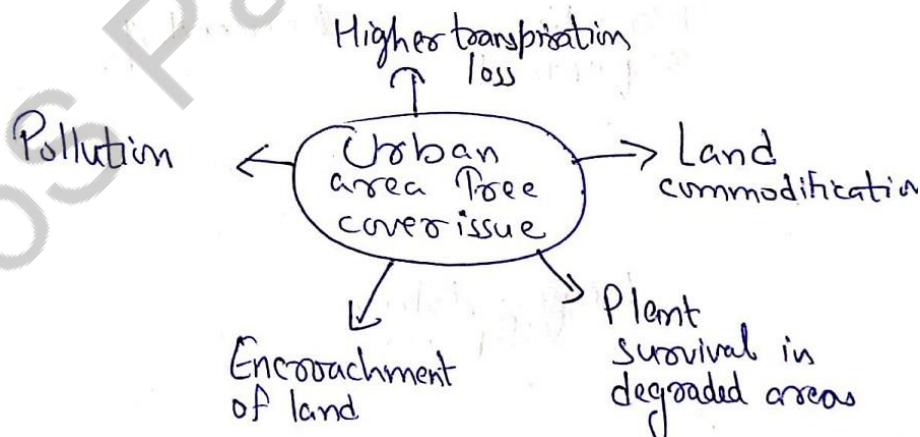 Higher transpiration
loss
Pollution
Urban
area Tree
cover issue
Land
commodification
Encroachment
of land
Plant
survival in
degraded areas